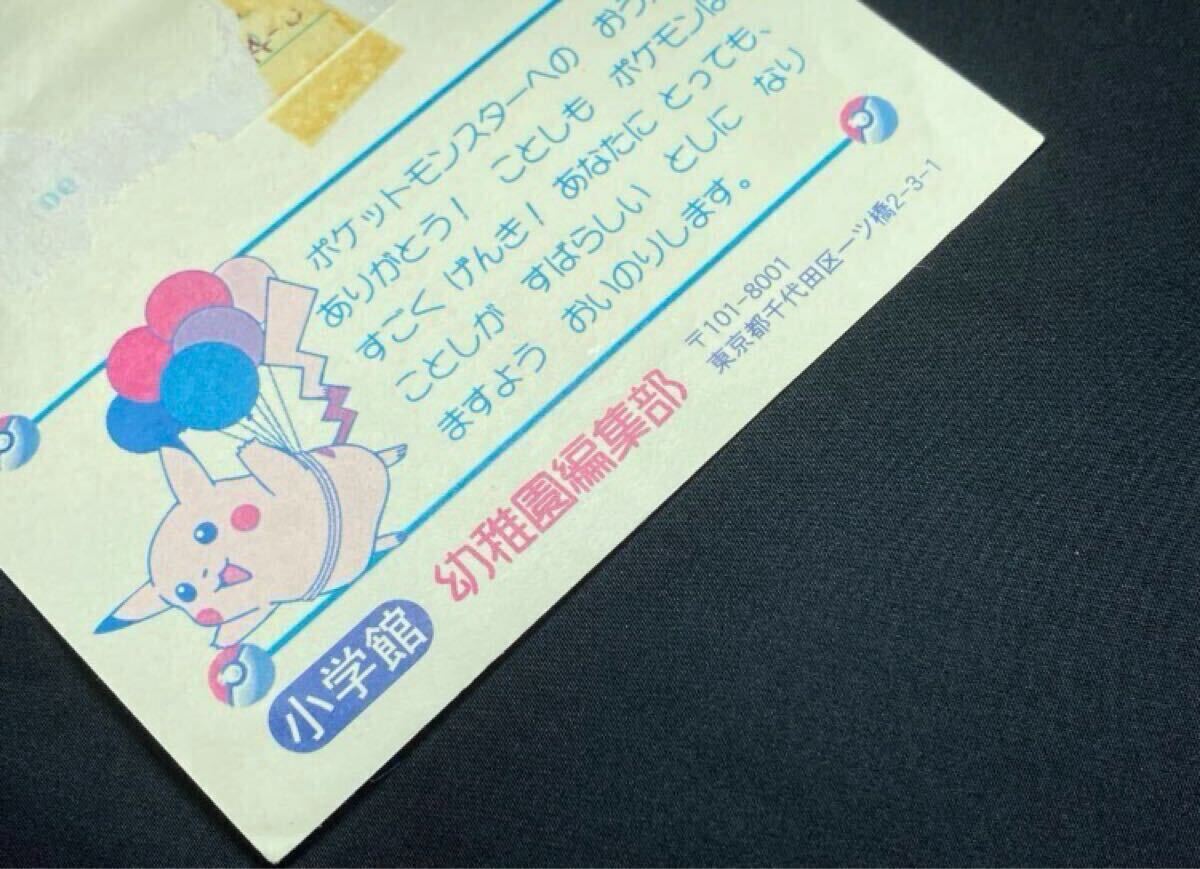 ポケットモンスターへの おう
ありがとう! ことしも ポケモンは
すごく げんき! あなたに とっても、
ことしが すばらしい としに なり
ますよう おいのりします。
〒101-8001
東京都千代田区一ツ橋2-3-1
小学館 幼稚園編集部